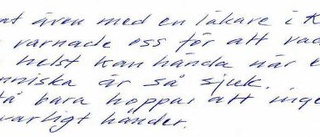 at även med en läkare i K
varnade oss för att vad
helst kan hända när e
nniska är så sjuk.
få bara hoppas att inge
varligt händer.